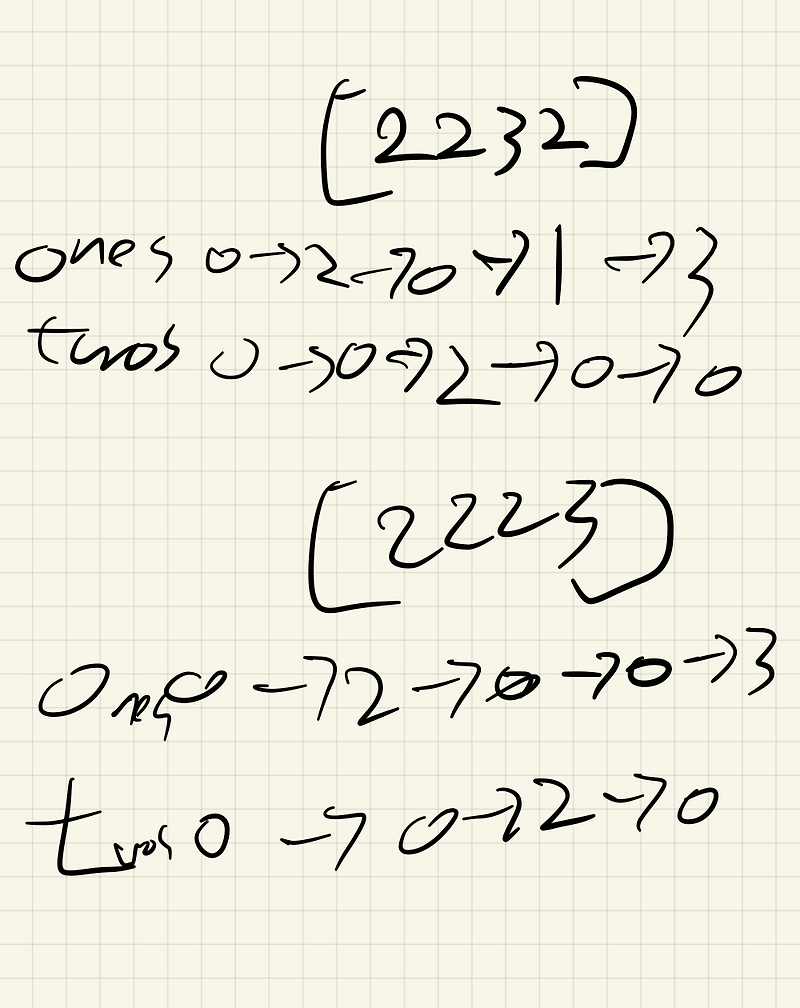 [2232]
ones 0→2→0→1→3
twos 0→0→2→0→0
[2223]
ones 0→2→0→0→3
twos 0→0→2→0